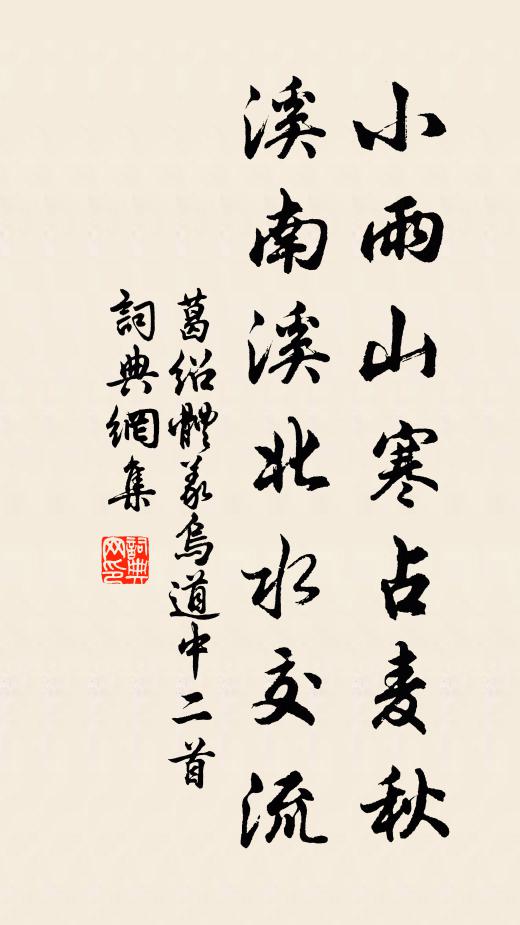 小雨山寒占麦秋
溪南溪北水交流
葛绍體义烏道中二首
詞典網集
詞典
网印